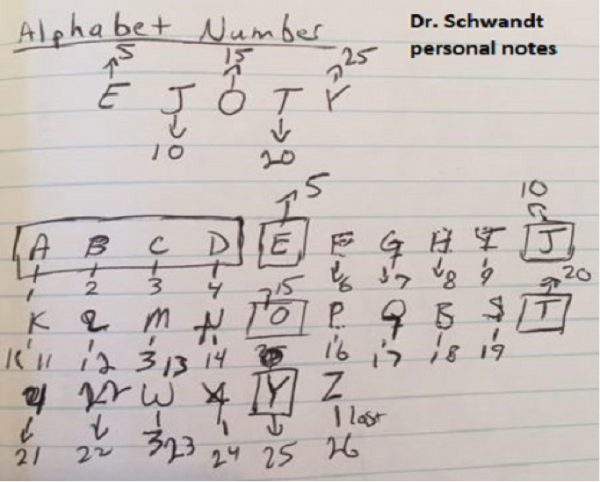 Alphabet Number
Dr. Schwandt
personal notes
5 15 25
E J O T Y
10 20
5 10
A B C D E F G H I J
1 2 3 4 6 7 8 9
15 20
K L M N O P Q R S T
11 12 3 13 14 16 17 18 19
U V W X Y Z
1 last
21 22 3 23 24 25 26